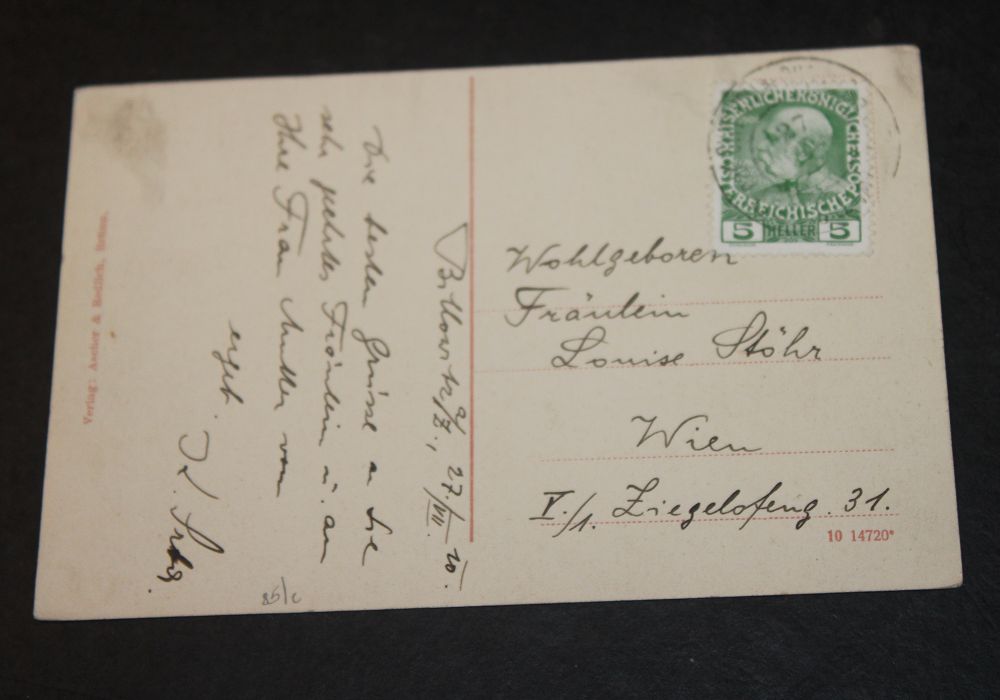 Billowitz a/Z., 27./VII. 10.
Die besten Grüsse an Sie
sehr geehrtes Fräulein u. an
Ihre Frau Mutter von
ergeb.
KAISERLICHE KÖNIGLICHE
ÖSTERREICHISCHE POST
5 HELLER 5
Wohlgeboren
Fräulein
Louise Stöhr
Wien
V./1. Ziegelofeng. 31.
10 14720*
Verlag: Ascher & Redlich, Brünn.